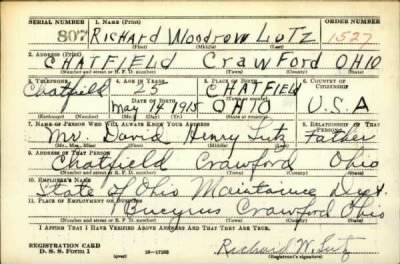 SERIAL NUMBER 1. NAME (Print) ORDER NUMBER
807 RICHARD Woodrow LUTZ 1527
(First) (Middle) (Last)
2. ADDRESS (Print)
CHATFIELD Crawford OHIO
(Number and street or R. F. D. number) (Town) (County) (State)
3. TELEPHONE 4. AGE IN YEARS 5. PLACE OF BIRTH 6. COUNTRY OF CITIZENSHIP
Chatfield 25 CHATFIELD
DATE OF BIRTH (Town or county)
May 14 1915 OHIO U.S.A
(Exchange) (Number) (Mo.) (Day) (Yr.) (State or country)
7. NAME OF PERSON WHO WILL ALWAYS KNOW YOUR ADDRESS 8. RELATIONSHIP OF THAT PERSON
Mr. David Henry Lutz Father
(Mr., Mrs., Miss) (First) (Middle) (Last)
9. ADDRESS OF THAT PERSON
Chatfield Crawford Ohio
(Number and street or R. F. D. number) (Town) (County) (State)
10. EMPLOYER'S NAME
State of Ohio Maintaince Dept.
11. PLACE OF EMPLOYMENT OR BUSINESS
Bucyrus Crawford Ohio
(Number and street or R. F. D. number) (Town) (County) (State)
I AFFIRM THAT I HAVE VERIFIED ABOVE ANSWERS AND THAT THEY ARE TRUE.
REGISTRATION CARD
D. S. S. Form 1 (over) Richard W. Lutz
(Registrant's signature)